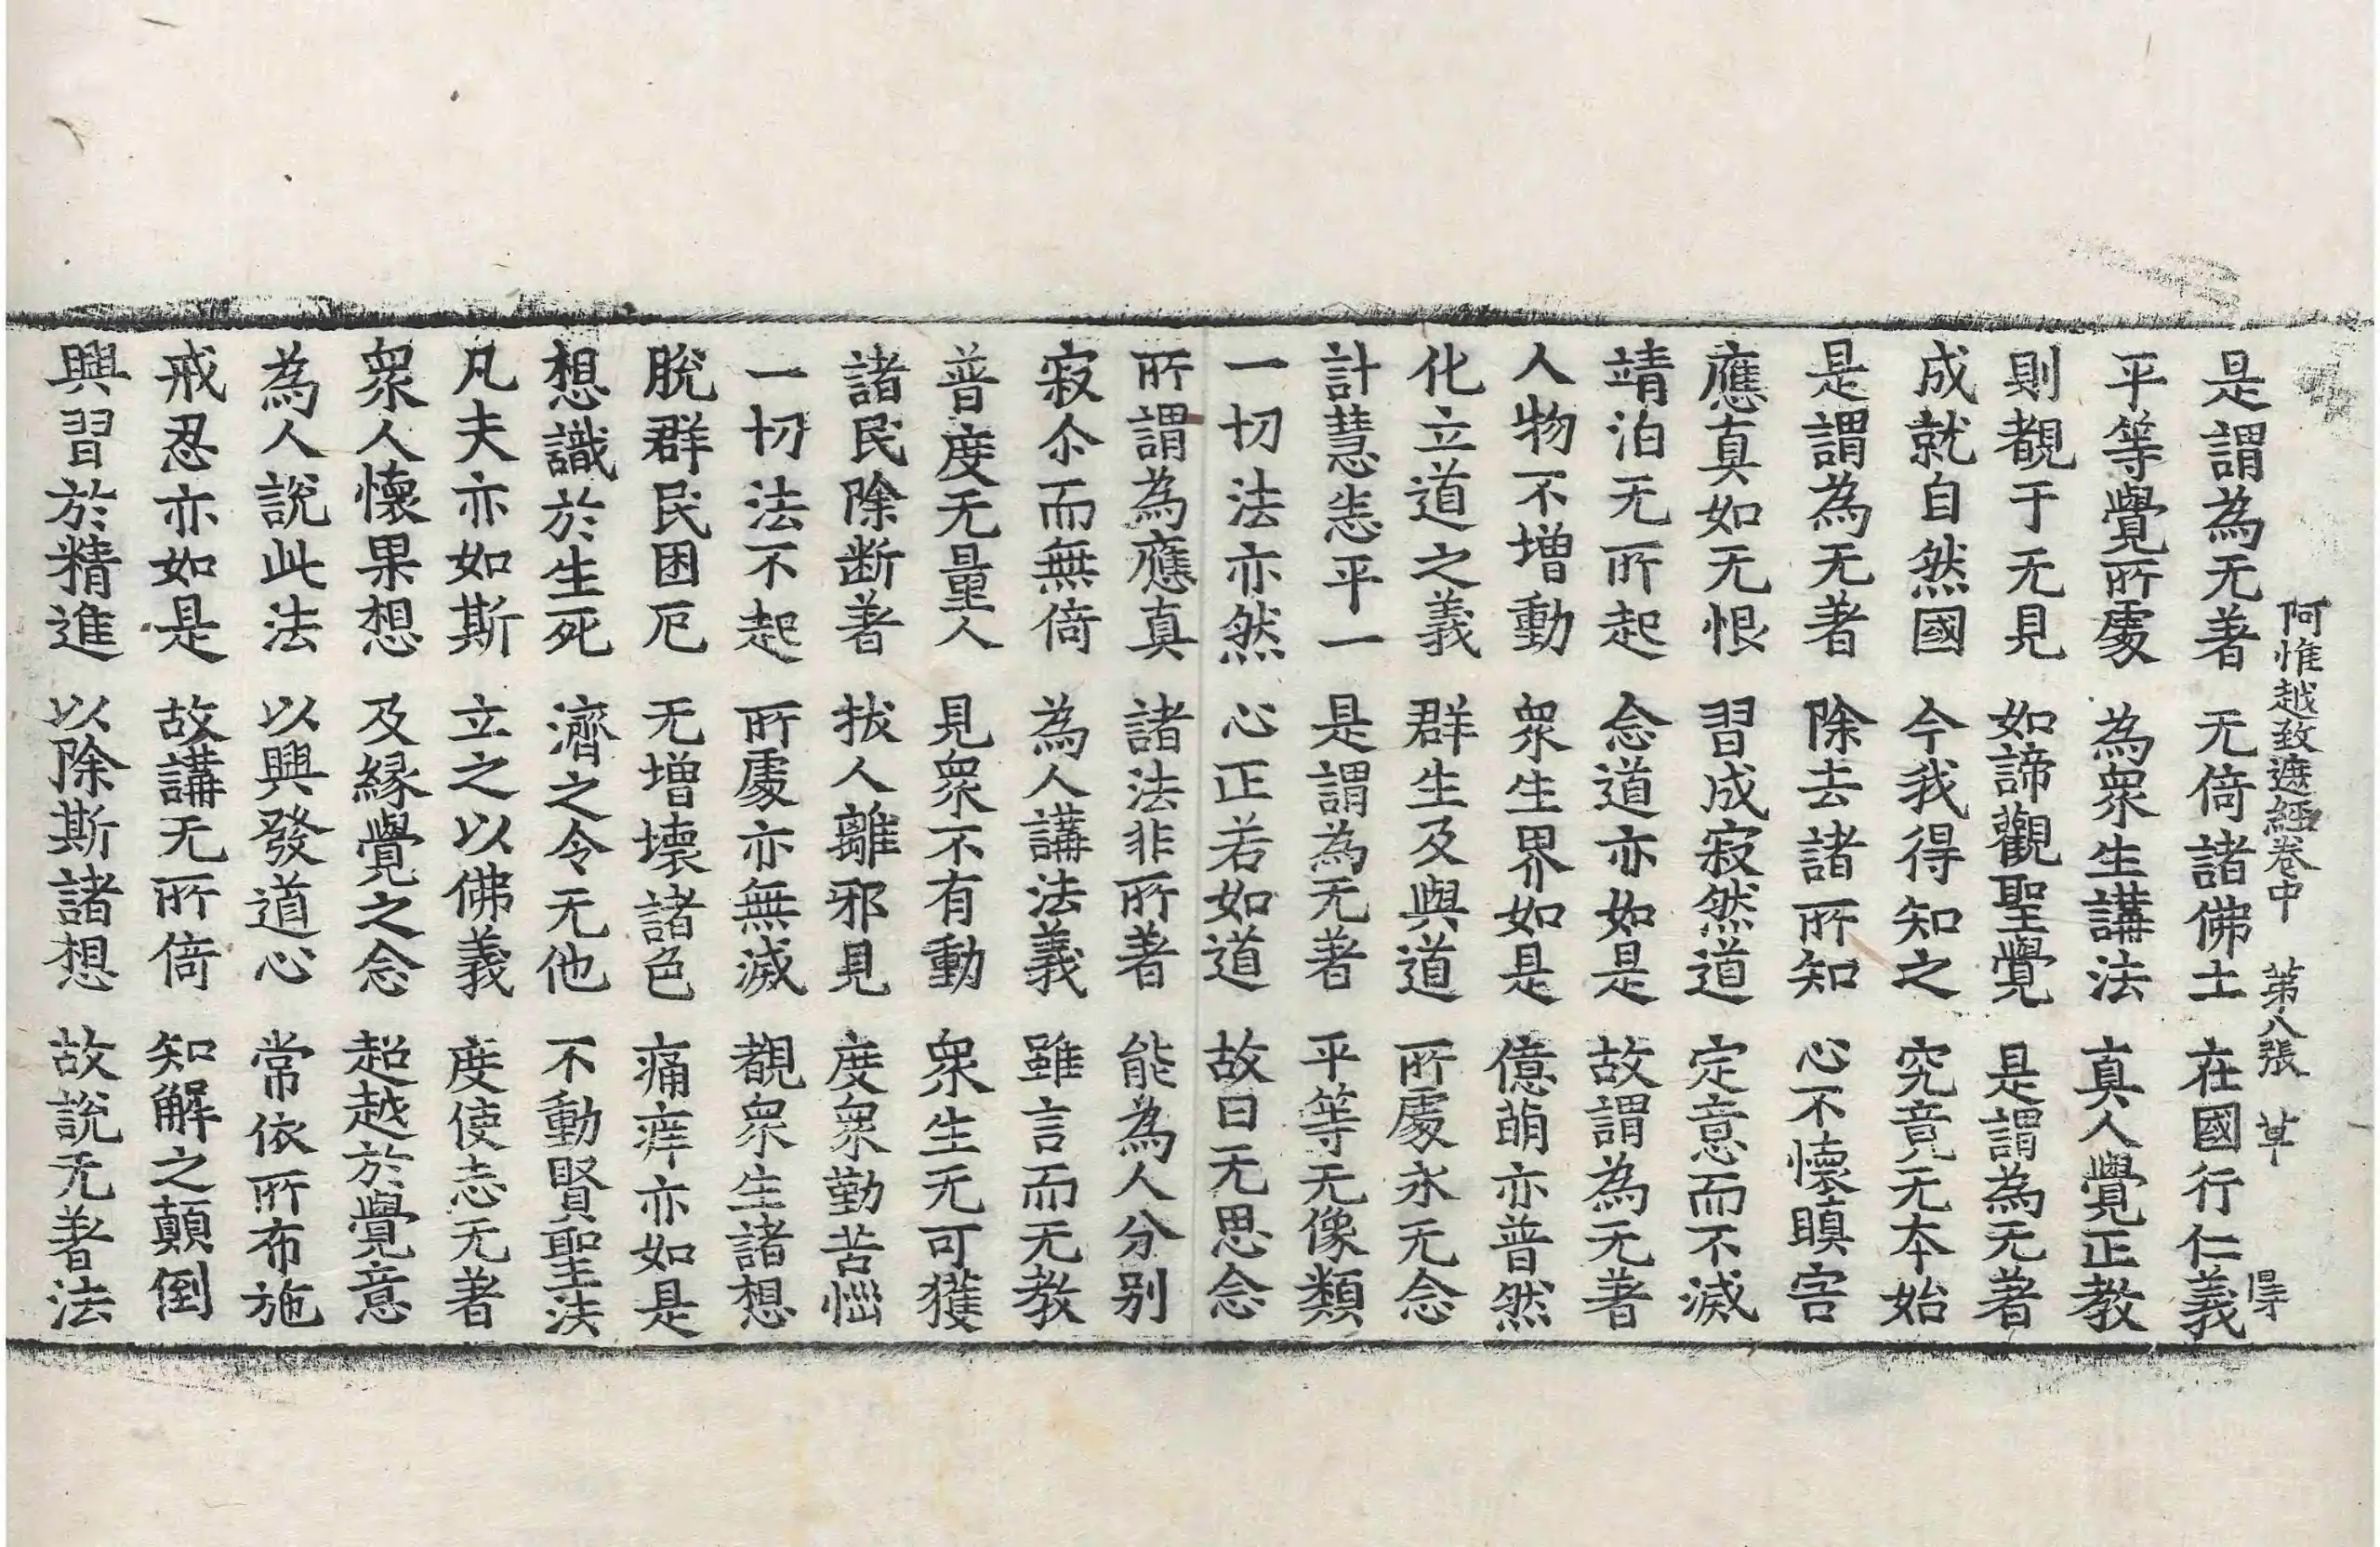 阿惟越致遮經卷中 第八張 草
是謂為无著 无倚諸佛土 在國行仁義
平等覺所處 為衆生講法 真人覺正教
則覩于无見 如諦觀聖覺 是謂為无著
成就自然國 今我得知之 究竟无本始
是謂為无著 除去諸所知 心不懷瞋害
應真如无恨 習成寂然道 定意而不滅
靖泊无所起 念道亦如是 故謂為无著
人物不增動 衆生界如是 億萌亦普然
化立道之義 群生及與道 所處永无念
計慧恙平一 是謂為无著 平等无像類
一切法亦然 心正若如道 故曰无思念
所謂為應真 諸法非所著 能為人分别
寂尒而無倚 為人講法義 雖言而无教
普度无量人 見衆不有動 衆生无可獲
諸民除断著 拔人離邪見 度衆勤苦惱
一切法不起 所處亦無滅 覩衆生諸想
脫群民困厄 无增壞諸色 痛痒亦如是
想識於生死 濟之令无他 不動賢聖法
凡夫亦如斯 立之以佛義 度使志无著
衆人懷果想 及緣覺之念 超越於覺意
為人說此法 以興發道心 常依所布施
戒忍亦如是 故講无所倚 知解之顛倒
興習於精進 以除斯諸想 故說无著法